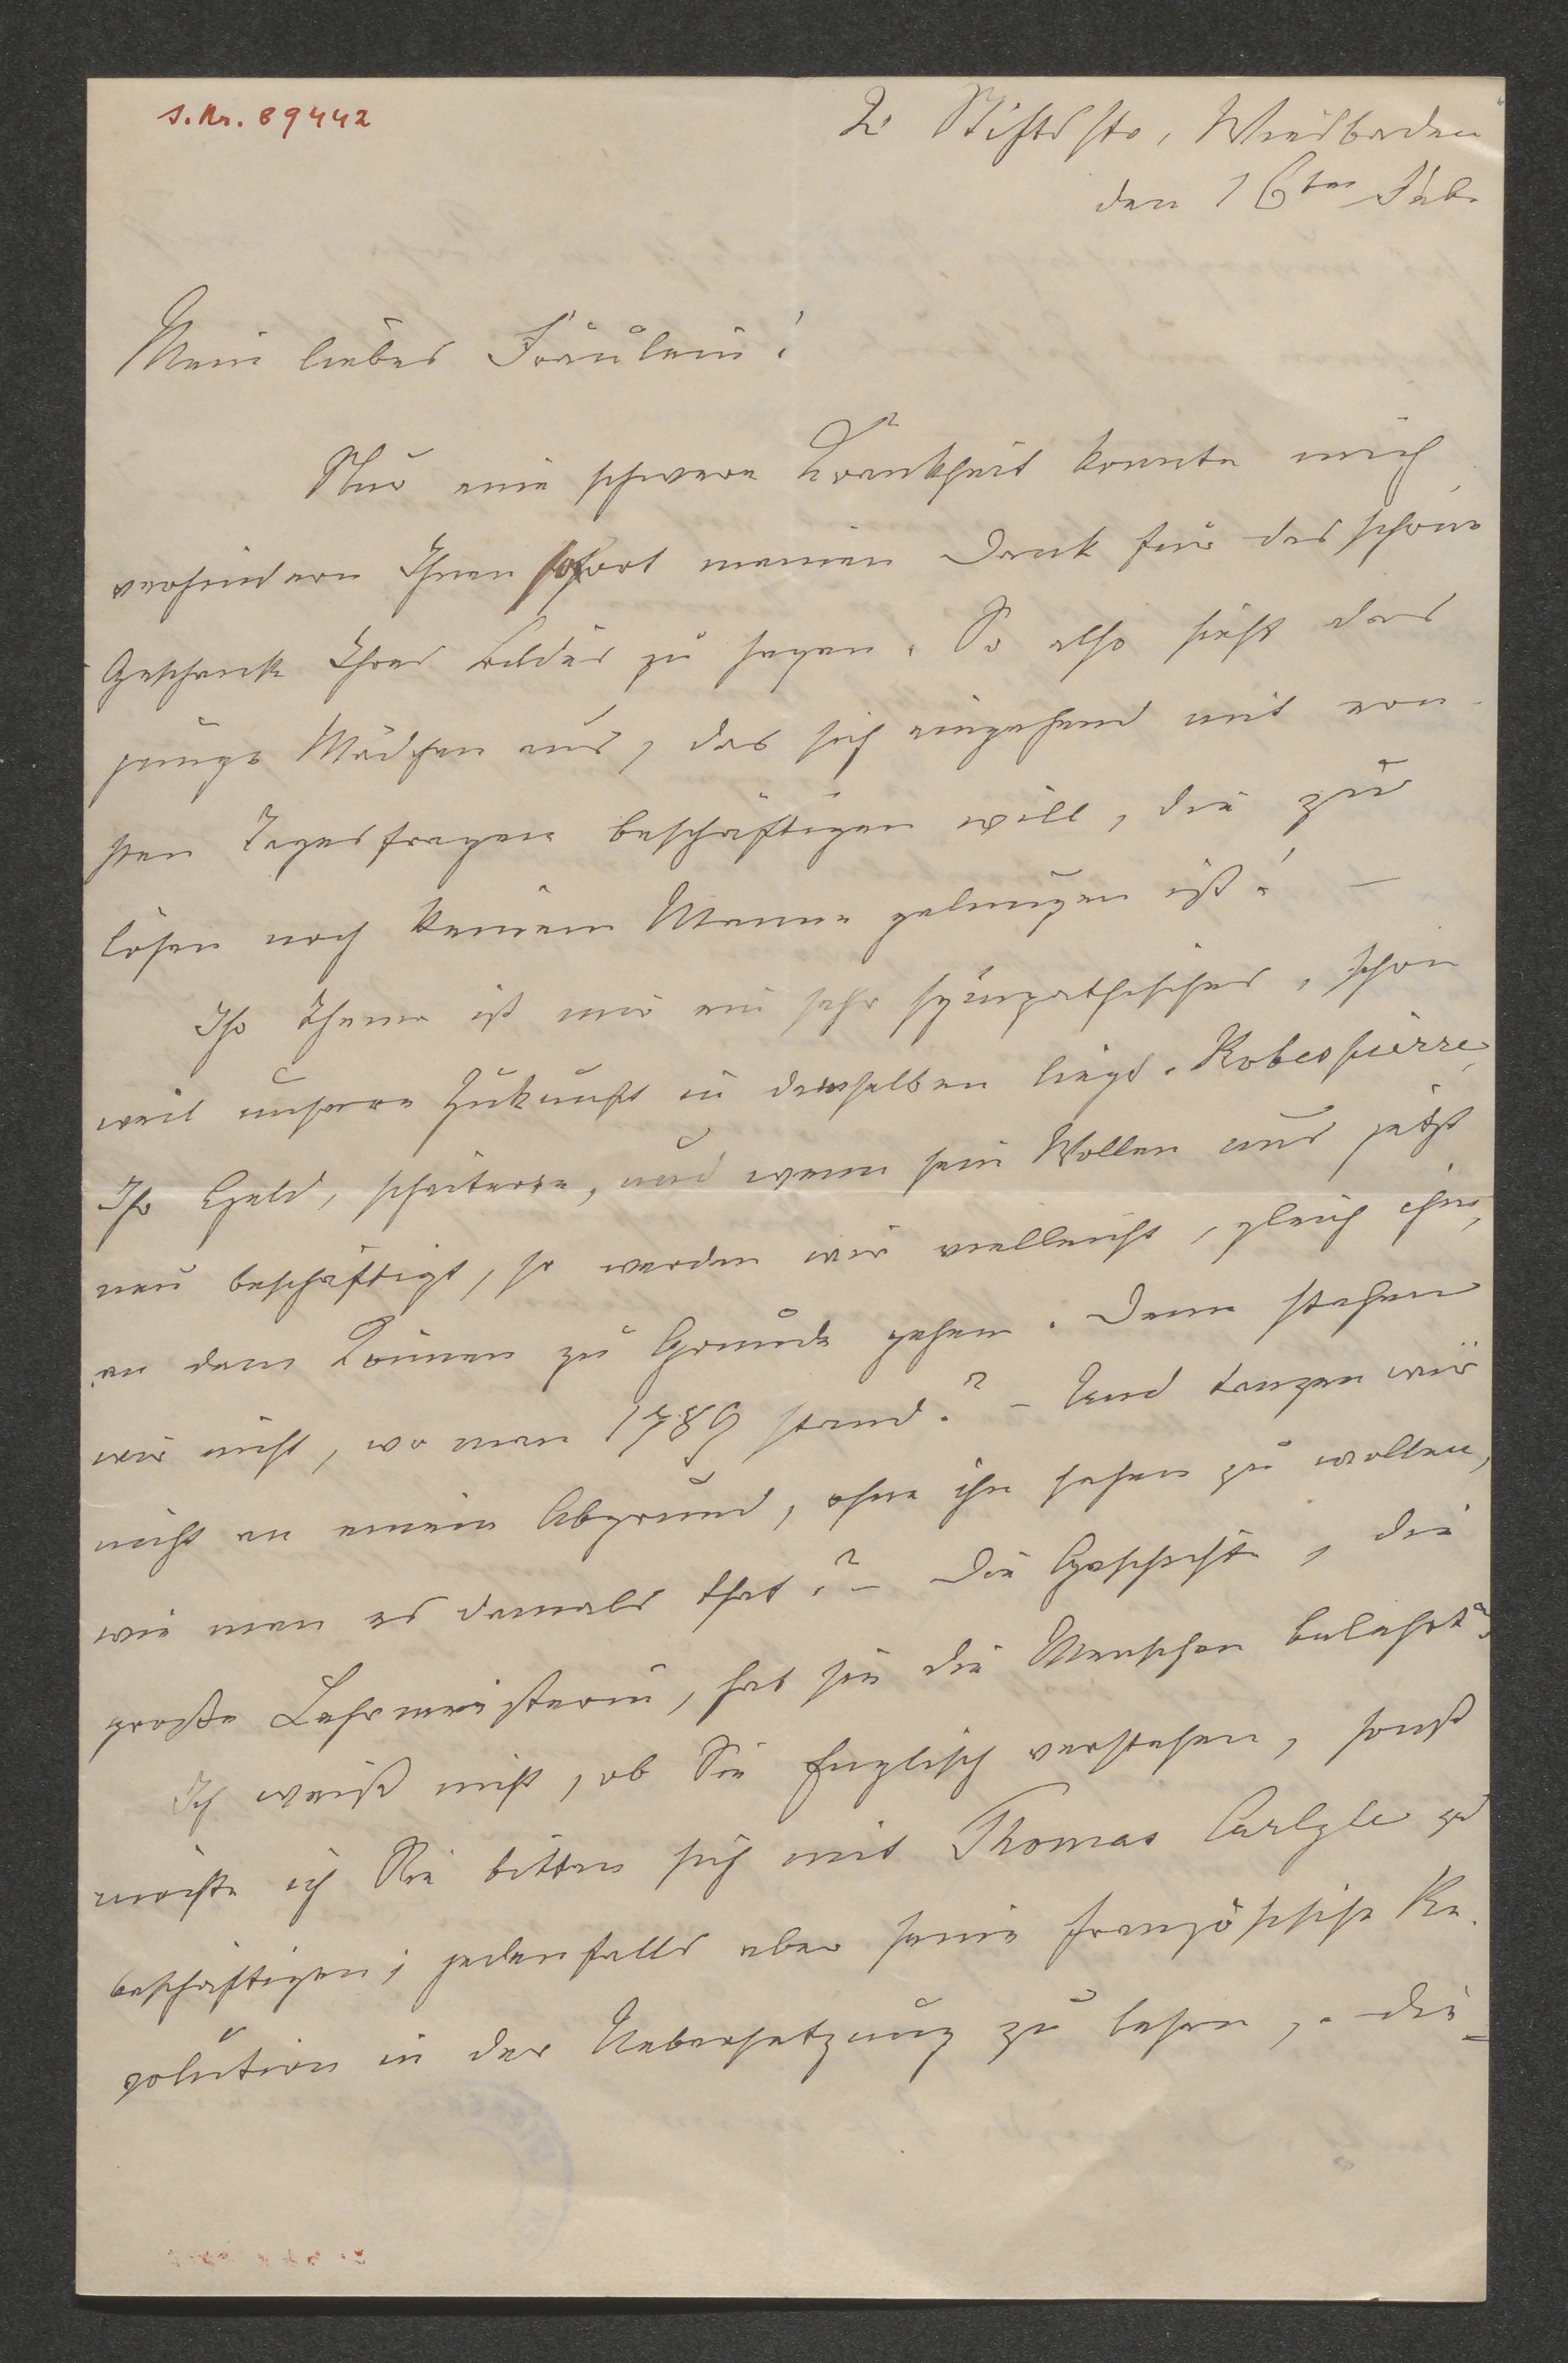 I. Nr. 89442
2 Stiftstr, Wiesbaden
den 16ten Feb.
Mein liebes Fräulein!
Nur eine schwere Krankheit konnte mich
verhindern Ihnen sofort meinen Dank für das schöne
Geschenk Ihres Bildes zu sagen. So also sieht das
junge Mädchen aus, das sich eingehend mit ern-
sten Tagesfragen beschäftigen will, die zu
lösen noch keinem Manne gelungen ist! –
Ihr Thema ist mir ein sehr sympathisches, schon
weil unsere Zukunft in demselben liegt. Robespierre,
Ihr Held, scheiterte, und wenn sein Wollen uns jetzt
neu beschäftigt, so werden wir vielleicht, gleich ihm,
an dem Können zu Grunde gehen. Denn stehen
wir nicht, wo man 1789 stand? – Und tanzen wir
nicht an einem Abgrund, ohne ihn sehen zu wollen,
wie man es damals that? – Die Geschichte, die
große Lehrmeisterin, hat sie die Menschen belehrt?
Ich weiß nicht, ob Sie Englisch verstehen, sonst
möchte ich Sie bitten sich mit Thomas Carlyle zu
beschäftigen; jedenfalls aber seine französische Re-
volution in der Uebersetzung zu lesen, – die